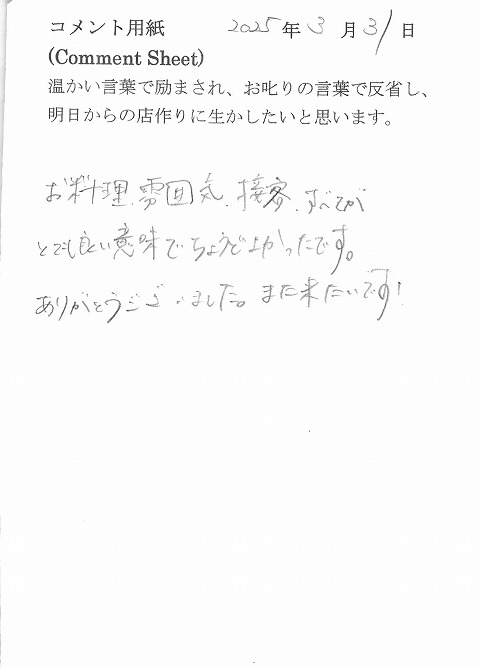 コメント用紙 2025年3月31日
(Comment Sheet)
温かい言葉で励まされ、お叱りの言葉で反省し、
明日からの店作りに生かしたいと思います。
お料理、雰囲気、接客、すべてが
とても良い意味でちょうどよかったです。
ありがとうございました。また来たいです!